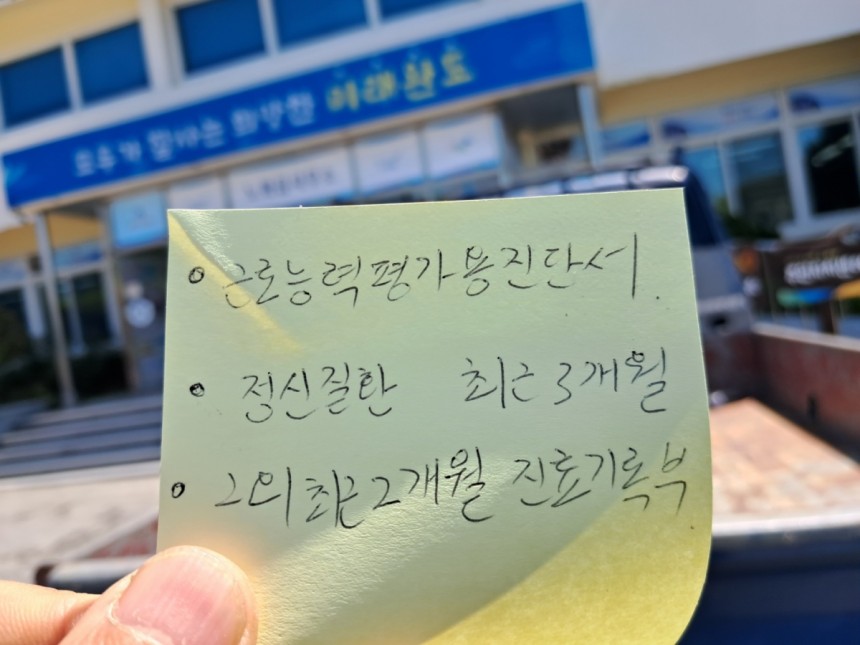 모두가 잘사는 희망찬 미래완도
o 근로능력평가용진단서.
o 정신질환 최근 3개월
o 그외 최근 2개월 진료기록부